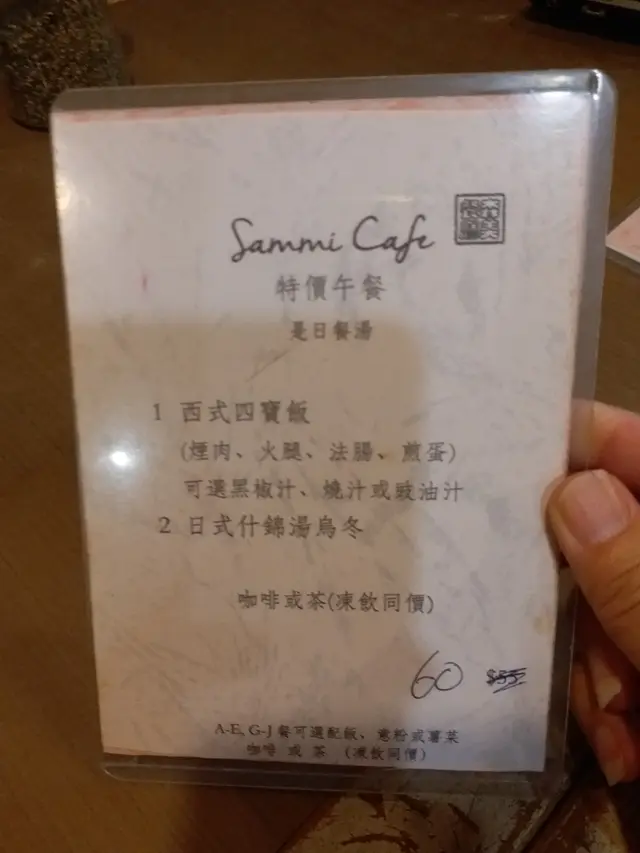 Sammi Cafe
特價午餐
是日餐湯
1 西式四寶飯
(煙肉、火腿、法腸、煎蛋)
可選黑椒汁、燒汁或豉油汁
2 日式什錦湯烏冬
咖啡或茶(凍飲同價)
60 $55
A-E, G-J 餐可選配飯、意粉或薯菜
咖啡 或 茶 (凍飲同價)